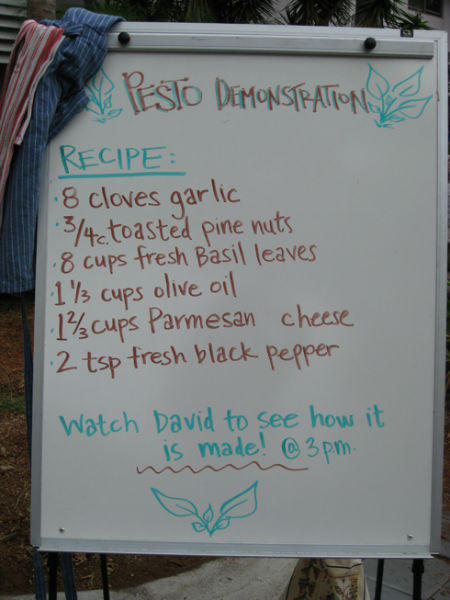 PESTO DEMONSTRATION
RECIPE:
· 8 cloves garlic
· 3/4 c. toasted pine nuts
· 8 cups fresh Basil leaves
· 1 1/3 cups olive oil
· 1 2/3 cups Parmesan cheese
· 2 tsp fresh black pepper
Watch David to see how it
is made! @ 3 p.m.